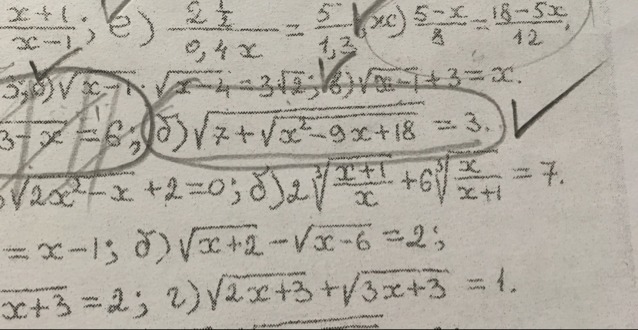 x+1/x-1; е) 2 1/2 / 0,4x = 5/1,2 ж) 5-x/8 = 18-5x/12.
б) √x-1 · √x-4 = 3√2; в) √x-1 + 3 = x.
3-x = 6; б) √7+√x²-9x+18 = 3.
√2x²-x + 2 = 0; б) 2 ∛x+1/x + 6 ∛x/x+1 = 7.
= x-1; б) √x+2 - √x-6 = 2;
√x+3 = 2; г) √2x+3 + √3x+3 = 1.